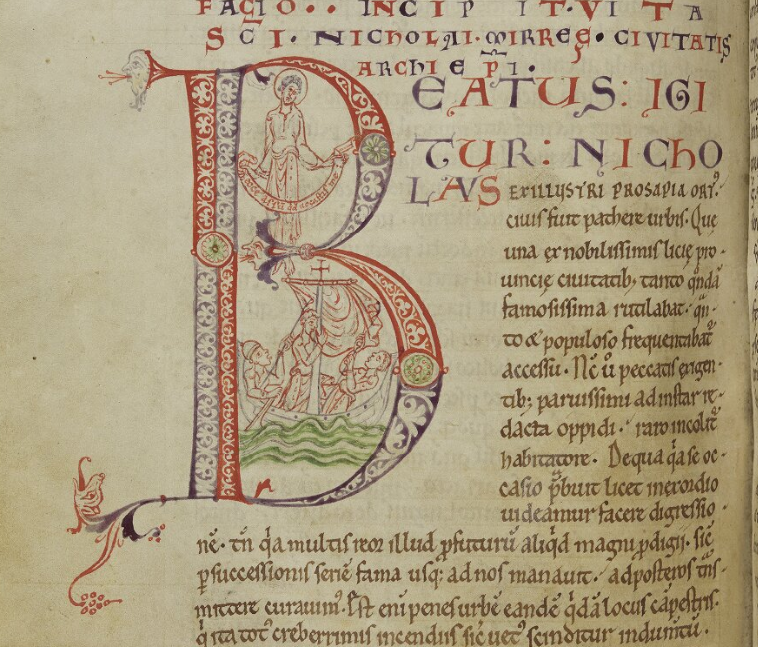 FACIO·· INCIPIT·VITA
SCI·NICHOLAI·MIRREE·CIVITATIS
ARCHIEPI·
BEATUS: IGI
TUR: NICHO
LAVS EX ILLUSTRI PROSAPIA ORT᾽·
ciuis fuit pathere urbis· Que
una ex nobilissimis licię pro·
uincię ciuitatib; tanto qndā
famosissima rutilabat· qn·
to & populoso frequentabat᷑
accessu· Nc̄ ū peccatis exigen·
tib; paruissimi ad instar re·
dacta oppidi· raro incolit᷑
habitatore· De qua q̄a se oc·
casio p̄buit licet in exordio
uideamur facere digressio·
nē· tn̄ q̄a multis reor illud ꝓfuturū aliq̄d magni ꝓdigii· sic̄
ꝑ successionis seriē fama usq; ad nos manauit· ad posteros
mittere curauim᾽· Est eni penes urbē eandē q̄dā locus cāpestris·
q̄ ita creberrimis incendiis sic̄ scinditur